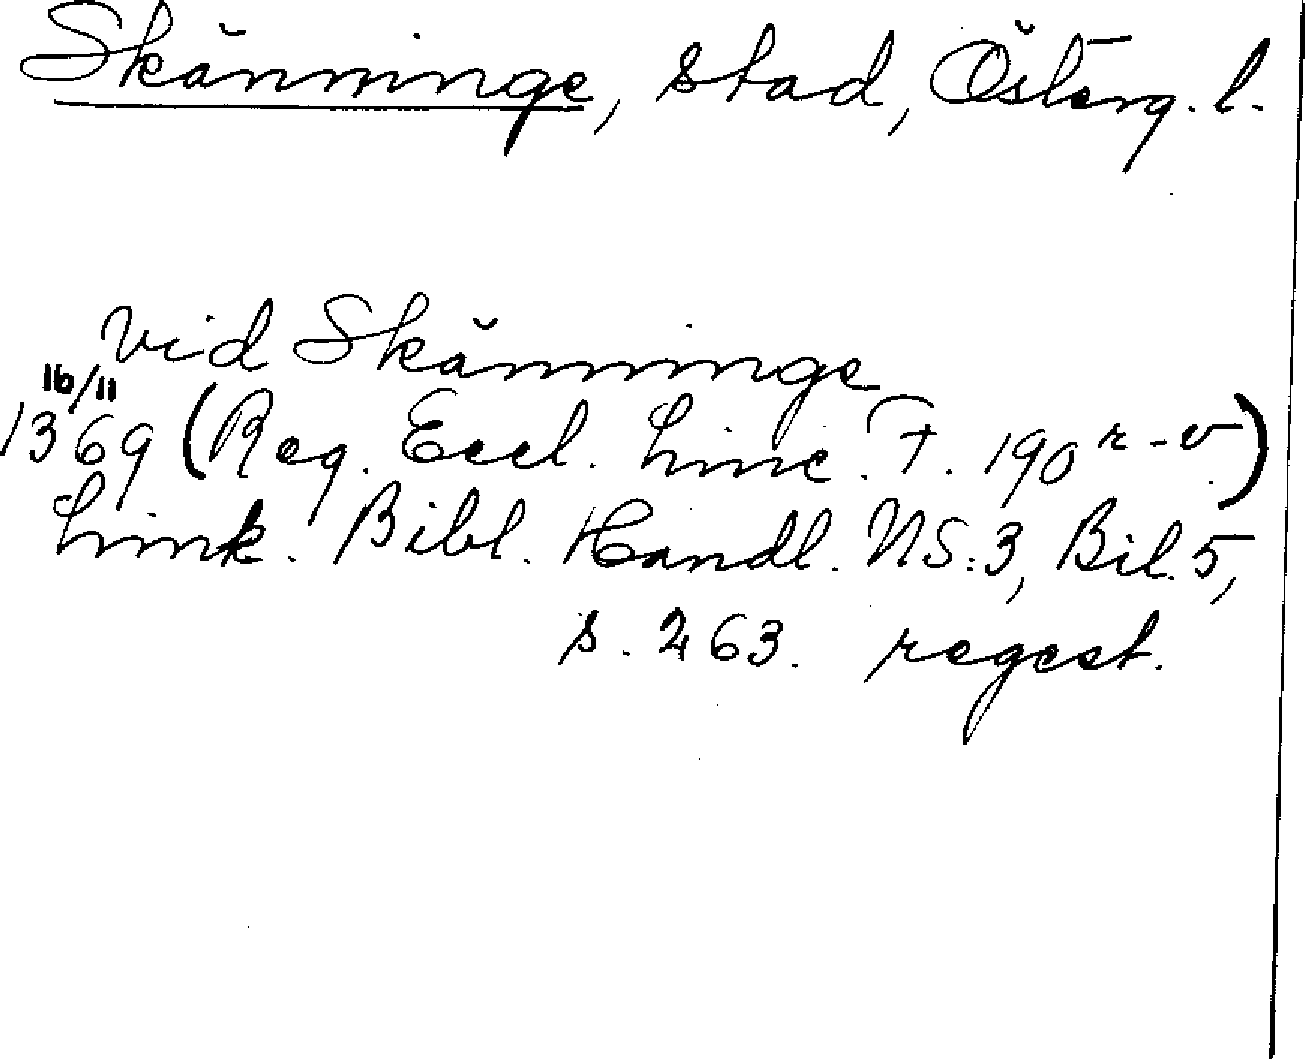 Skänninge, stad, Österg. l.
vid Skänninge
16/11
1369 (Reg. Eccl. Linc. F. 190 r-v)
Link. Bibl. Handl. NS:3, Bil. 5,
s. 263. regest.